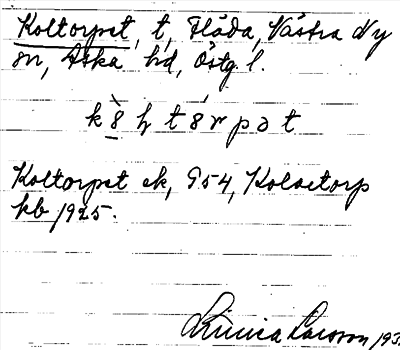 Koltorpet, t, Flåda, Västra Ny
sn, Aska hd, Östg. l.
k 8 l t 8 r p ə t
Koltorpet ek, 954, Kolsetorp
kb 1925.
Linnea Larsson 193